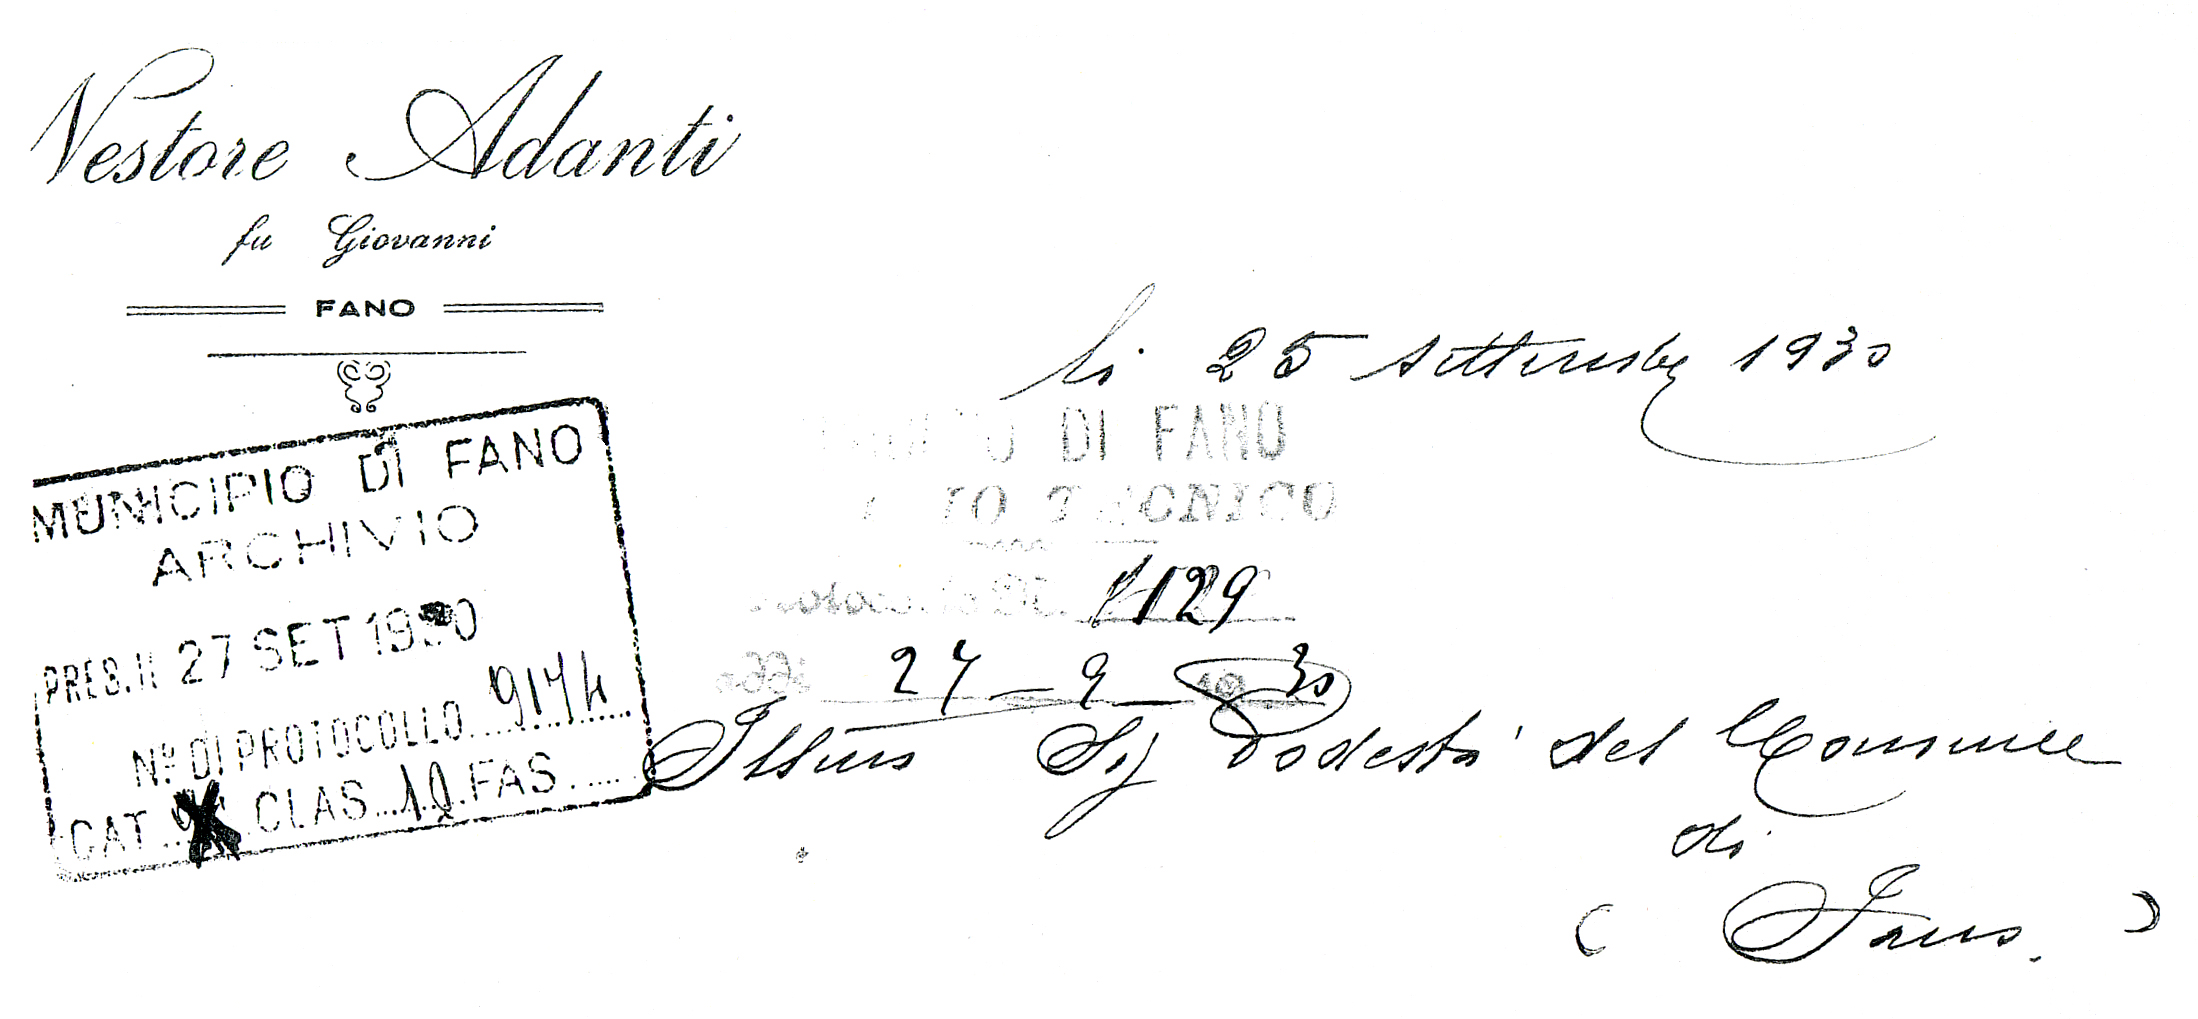 Nestore Adanti
fu Giovanni
FANO
li 25 settembre 1930
MUNICIPIO DI FANO
ARCHIVIO
PRES. IL 27 SET 1930
Nº DI PROTOCOLLO 9174
CAT. X CLAS. 10 FAS.
DI FANO
TECNICO
1129
addi 27-9-1930
Illmo Sig Podestà del Comune
di
( Fano. )